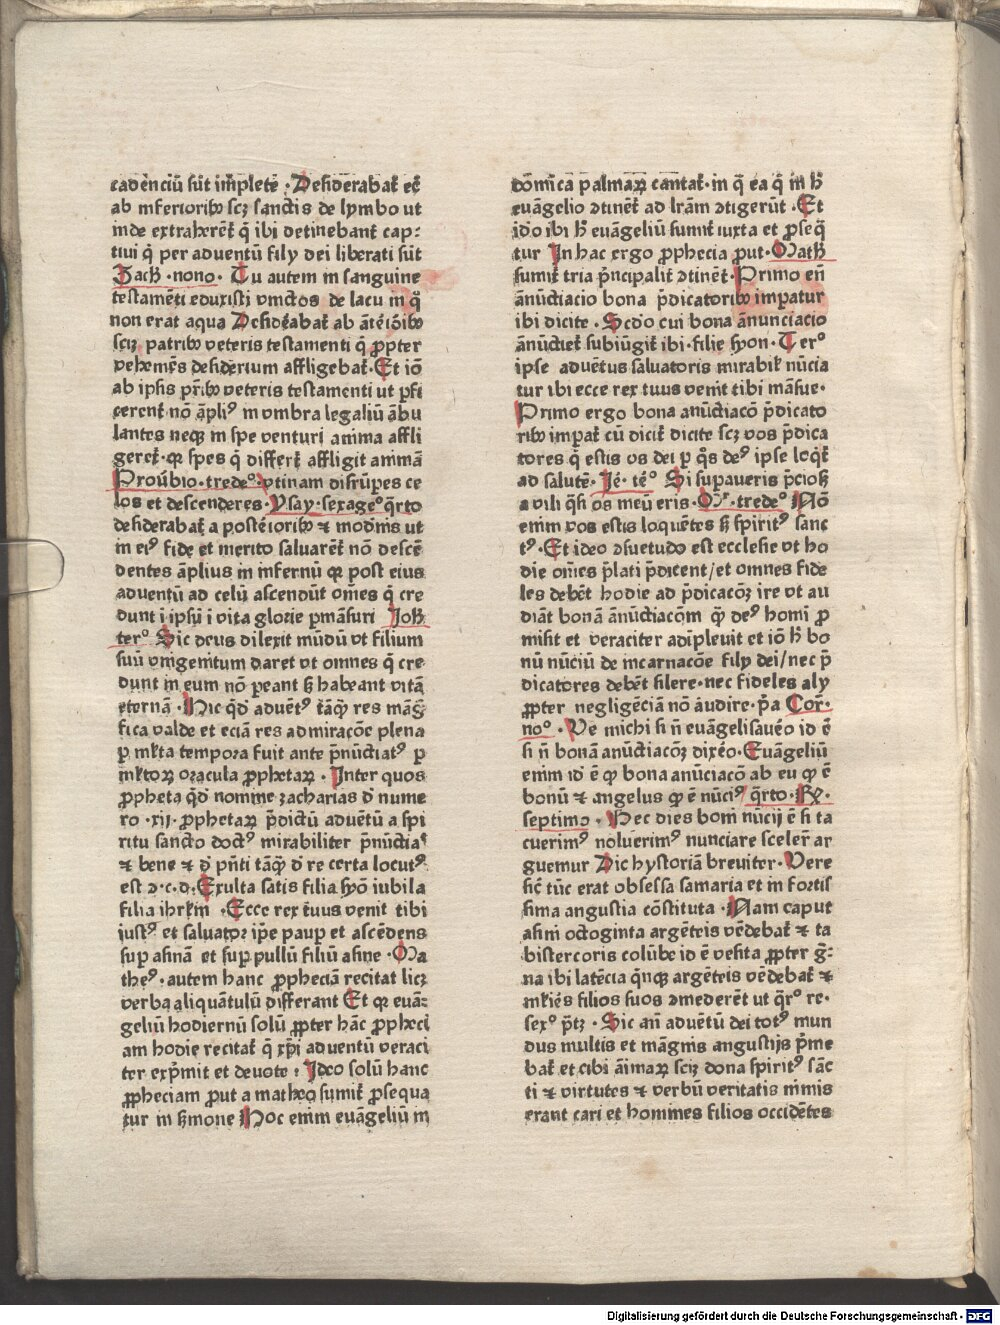 cadenciū sūt implete · Desiderabat᷑ ec̄
ab inferiorib⁹ scꝫ sanctis de lymbo ut
inde extraherēt᷑ q̄ ibi detinebant᷑ cap-
tiui q̄ per aduentū filij dei liberati sūt
Zach᷑ · nono · Tu autem in sanguine
testamēti eduxisti vinctos de lacu in q̊
non erat aqua Desid̓abat᷑ ab āteiorib⁹
scꝫ patrib⁹ veteris testamenti q̄ ꝓpter
vehemēs desiderium affligebat᷑ · Et iō
ab ipsis pr̄ib⁹ veteris testamenti ut ꝑfi
cerent᷑ nō āpli⁹ in vmbra legaliū ābu
lantes neqꝫ in spe venturi anima affli
geret᷑ · qꝛ spes q̄ differt᷑ affligit animā
Prou̓bio · trede° vtinam disrūpes ce
los et descenderes · Ysay · sexage° q̄rto
desiderabat᷑ a posteiorib⁹ ⁊ mod̓nis ut
in ei⁹ fide et merito saluarēt᷑ nō descē
dentes āplius in infernū qꝛ post eius
aduentū ad celū ascendūt om̄es q̄ cre
dunt ī ipsū ī vita glorie ꝑmāsuri Joh᷑
ter° Sic deus dilexit mūdū vt filium
suū vnigenitum daret vt omnes q̄ cre
dunt in eum nō ꝑeant sꝫ habeant vitā
eternā · Hic q̄d̓ aduēt⁹ tāq̄ꝫ res māḡ
fica valde et eciā res admiracōe plena
ꝑ mlta tempora fuit ante p̄nūctiat⁹ ꝑ
mltoꝝ oracula ꝓphetaꝝ · Inter quos
ꝓpheta q̄d̓ nomine zacharias d̓ nume
ro · xij · ꝓphetaꝝ p̄dictū aduētū a spi
ritu sancto doct⁹ mirabiliter p̄nūctia᷑
⁊ bene ⁊ d̓ p̄nti tāq̄ꝫ d̓ re certa locut⁹
est ꝛ · c · d · Exulta satis filia syō iubila
filia ihrlm · Ecce rex tuus venit tibi
iust⁹ et saluator ip̄e pauꝑ et ascēdens
suꝑ asinā et suꝑ pullū filiū asine · Ma
the⁹ · autem hanc ꝓpheciā recitat licꝫ
verba aliquātulū differant Et qꝛ euā-
geliū hodiernū solū ꝓpter hāc ꝓpheci
am hodie recitat᷑ q̄ xp̄i aduentū veraci
ter exp̄mit et deuote : Ideo solū hanc
ꝓpheciam ꝓut a matheo sumit᷑ ꝓsequa
tur in sꝫmone Hoc enim euāgeliū in
dōmica palmaꝝ cantat᷑ · in q̄ ea q̄ in h̄
euāgelio ꝯtinēt᷑ ad lr̄am ꝯtigerūt · Et
id̓o ibi h̄ euāgeliū sumit᷑ iuxta et ꝓseq̄
tur In hac ergo ꝓphecia ꝓut · Math᷑
sumit᷑ tria p̄ncipalit᷑ ꝯtinēt᷑ · Primo eni
ānūctiacio bona p̄dicatorib⁹ imꝑatur
ibi dicite · Scd̓o cui bona ānunciacio
ānūctiet᷑ subiūgit᷑ ibi · filie syon · Ter°
ipse aduētus saluatoris mirabil᷑ nūcia
tur ibi ecce rex tuus venit tibi māsue ·
Primo ergo bona anūctiacō p̄dicato
rib⁹ imꝑat᷑ cū dicit᷑ dicite scꝫ vos p̄dica
tores q̄ estis os dei ꝑ q̄s de⁹ ipse loq̄t᷑
ad salutē · Je᷑ · te° Si suꝑaueris p̄ciosꝫ
a vili q̄si os meū eris · Mr᷑ · trede° Nō
enim vos estis loquētes sꝫ spirit⁹ sanc
t⁹ · Et ideo ꝯsuetudo est ecclesie vt ho
die om̄es p̄lati p̄dicent / et omnes fide
les debēt hodie ad p̄dicacōꝫ ire vt au
diāt bonā anūctiacōm q̄ꝫ de⁹ homi ꝓ
misit et veraciter adīpleuit et iō h̄ bo
nū nūciū de incarnacōe filij dei / nec p̄
dicatores debēt silere · nec fideles aly
ꝓpter negligēciā nō audire · p̄a Cor᷑ ·
no° · Ve michi si n̄ euāgelisaue̓o id ē
si n̄ bonā anūctiacōꝫ dixe̓o · Euāgeliū
enim id ē qꝛ bona anūciacō ab eu qꝛ ē
bonū ⁊ angelus qꝛ ē nūci⁹ q̄rto · Rꝫ ·
septimo · Hec dies boni nūcij ē si ta
cuerim⁹ noluerim⁹ nunciare sceler᷑ ar
guemur Dic hystoriā breuiter · Vere
sic̄ tūc erat obsessa samaria et in fortis
sima angustia cōstituta · Nam caput
asini octoginta argēteis vēdebat᷑ ⁊ ta
bistercoris colūbe id ē vesita ꝓpter ḡ-
na ibi latēcia q̄nqꝫ argēteis vēdebat᷑ ⁊
mliēs filios suos ꝯmederēt ut q̄r° re ·
sex° p̄tꝫ · Sic añ aduētū dei tot⁹ mun
dus multis et māgnis angustijs p̄me
bat᷑ et cibi āimaꝝ scꝫ dona spirit⁹ sāc
ti ⁊ virtutes ⁊ verbū veritatis nimis
erant cari et hommes filios occidētes
Digitalisierung gefördert durch die Deutsche Forschungsgemeinschaft · DFG